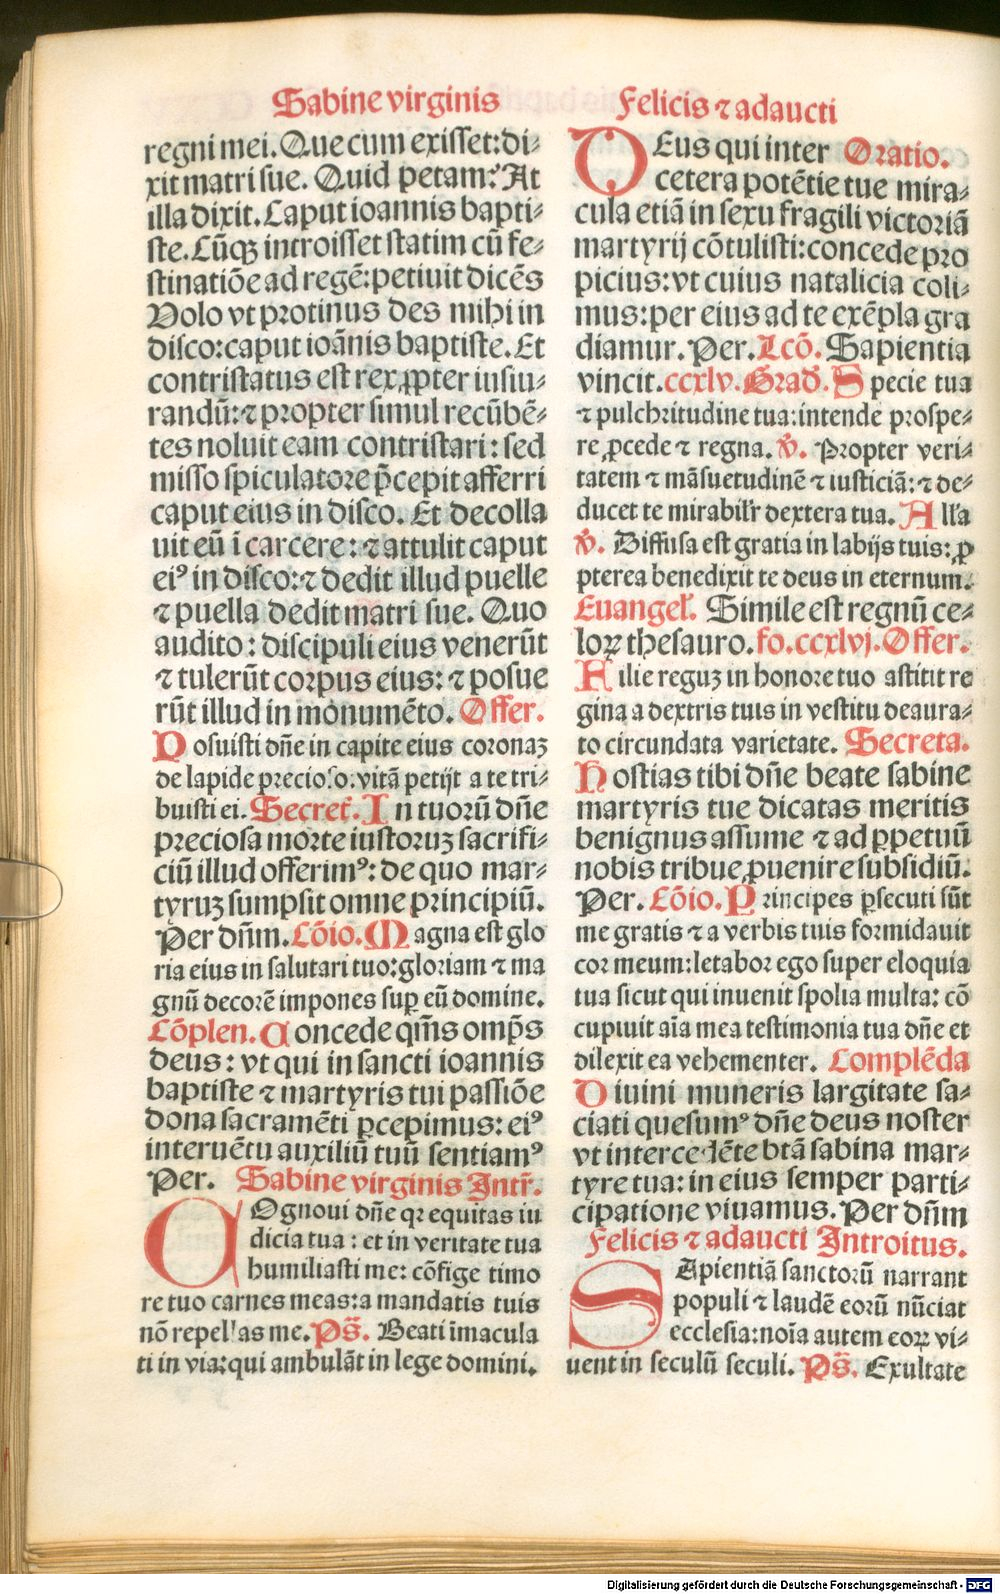 Sabine virginis
regni mei. Que cum exisset: di⸗
xit matri sue. Quid petam? At
illa dixit. Caput ioannis bapti⸗
ste. Cũqꝫ introisset statim cũ fe⸗
stinatiõe ad regẽ: petiuit dicẽs
Volo vt protinus des mihi in
disco: caput ioãnis baptiste. Et
contristatus est rex, ꝓpter iusiu⸗
randũ: ⁊ propter simul recũbẽ⸗
tes noluit eam contristari: sed
misso spiculatore p̃cepit afferri
caput eius in disco. Et decolla
uit eũ ĩ carcere: ⁊ attulit caput
eiꝰ in disco: ⁊ dedit illud puelle
⁊ puella dedit matri sue. Quo
audito: discipuli eius venerũt
⁊ tulerũt corpus eius: ⁊ posue
rũt illud in monumẽto. Offer.
Posuisti dñe in capite eius coronaꝫ
de lapide precioso: vitã petijt a te tri⸗
buisti ei. Secret̃. In tuorũ dñe
preciosa morte iustoruꝫ sacrifi⸗
ciũ illud offerimꝰ: de quo mar⸗
tyruꝫ sumpsit omne principiũ.
Per dñm. Cõio. Magna est glo
ria eius in salutari tuo: gloriam ⁊ ma
gnũ decorẽ impones suꝑ eũ domine.
Cõplen. Concede qm̃s omp̃s
deus: vt qui in sancti ioannis
baptiste ⁊ martyris tui passiõe
dona sacramẽti ꝑcepimus: eiꝰ
interuẽtu auxiliũ tuũ sentiamꝰ
Per. Sabine virginis Intr̃.
COgnoui dñe qꝛ equitas iu
dicia tua: et in veritate tua
humiliasti me: cõfige timo
re tuo carnes meas: a mandatis tuis
nõ repellas me. Ps̃. Beati ĩmacula
ti in via: qui ambulãt in lege domini.
Felicis ⁊ adaucti
DEus qui inter Oratio.
cetera potẽtie tue mira⸗
cula etiã in sexu fragili victoriã
martyrij cõtulisti: concede pro
picius: vt cuius natalicia coli⸗
mus: per eius ad te exẽpla gra
diamur. Per. Lcõ. Sapientia
vincit. ccxlv. Grad̃. Specie tua
⁊ pulchritudine tua: intende prospe⸗
re, ꝓcede ⁊ regna. ℣. Propter veri⸗
tatem ⁊ mãsuetudinẽ ⁊ iusticiã: ⁊ de⸗
ducet te mirabilr̃ dextera tua. All'a
℣. Diffusa est gratia in labijs tuis: ꝓ
pterea benedixit te deus in eternum.
Euangel̃. Simile est regnũ ce⸗
loꝝ thesauro. fo. ccxlvj. Offer.
Filie reguꝫ in honore tuo astitit re
gina a dextris tuis in vestitu deaura⸗
to circundata varietate. Secreta.
Hostias tibi dñe beate sabine
martyris tue dicatas meritis
benignus assume ⁊ ad ꝑpetuũ
nobis tribue ꝓuenire subsidiũ.
Per. Cõio. Principes ꝑsecuti sũt
me gratis ⁊ a verbis tuis formidauit
cor meum: letabor ego super eloquia
tua sicut qui inuenit spolia multa: cõ
cupiuit aĩa mea testimonia tua dñe et
dilexit ea vehementer. Complẽda
Diuini muneris largitate sa⸗
ciati quesumꝰ dñe deus noster
vt intercedẽte btã sabina mar⸗
tyre tua: in eius semper parti⸗
cipatione viuamus. Per dñm
Felicis ⁊ adaucti Introitus.
SApientiã sanctorũ narrant
populi ⁊ laudẽ eorũ nũciat
ecclesia: noĩa autem eoꝝ vi⸗
uent in seculũ seculi. Ps̃. Exultate
Digitalisierung gefördert durch die Deutsche Forschungsgemeinschaft - DFG